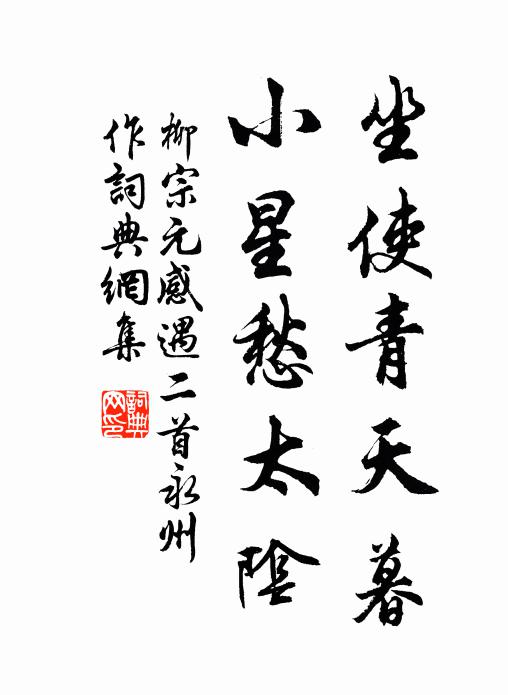 坐使青天暮
小星愁太陰
柳宗元感遇二首永州
作詞典網集
詞典網印